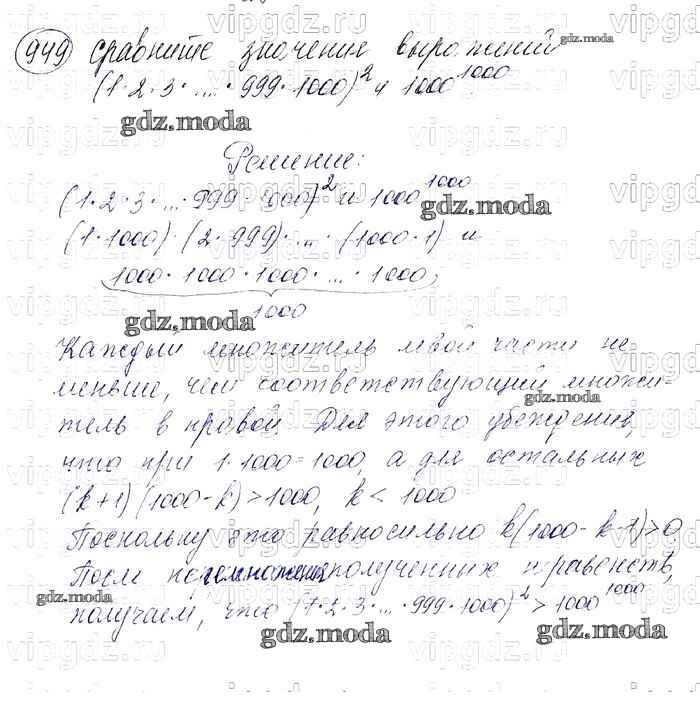 949 Сравните значения выражений
(1·2·3·...·999·1000)² и 1000¹⁰⁰⁰
gdz.moda
gdz.moda
Решение:
(1·2·3·...·999·1000)² и 1000¹⁰⁰⁰
gdz.moda
(1·1000)·(2·999)·...·(1000·1) и
1000·1000·1000·...·1000
1000
gdz.moda
Каждый множитель левой части не
меньше, чем соответствующий множи-
gdz.moda
тель в правой. Для этого убеждения,
что при 1·1000=1000, а для остальных
(k+1)(1000-k)>1000, k<1000
Поскольку это равносильно k(1000-k-1)>0
После перемножения полученных неравенств,
gdz.moda
получаем, что (1·2·3·...·999·1000)²>1000¹⁰⁰⁰
gdz.moda
gdz.moda
vipgdz.ru